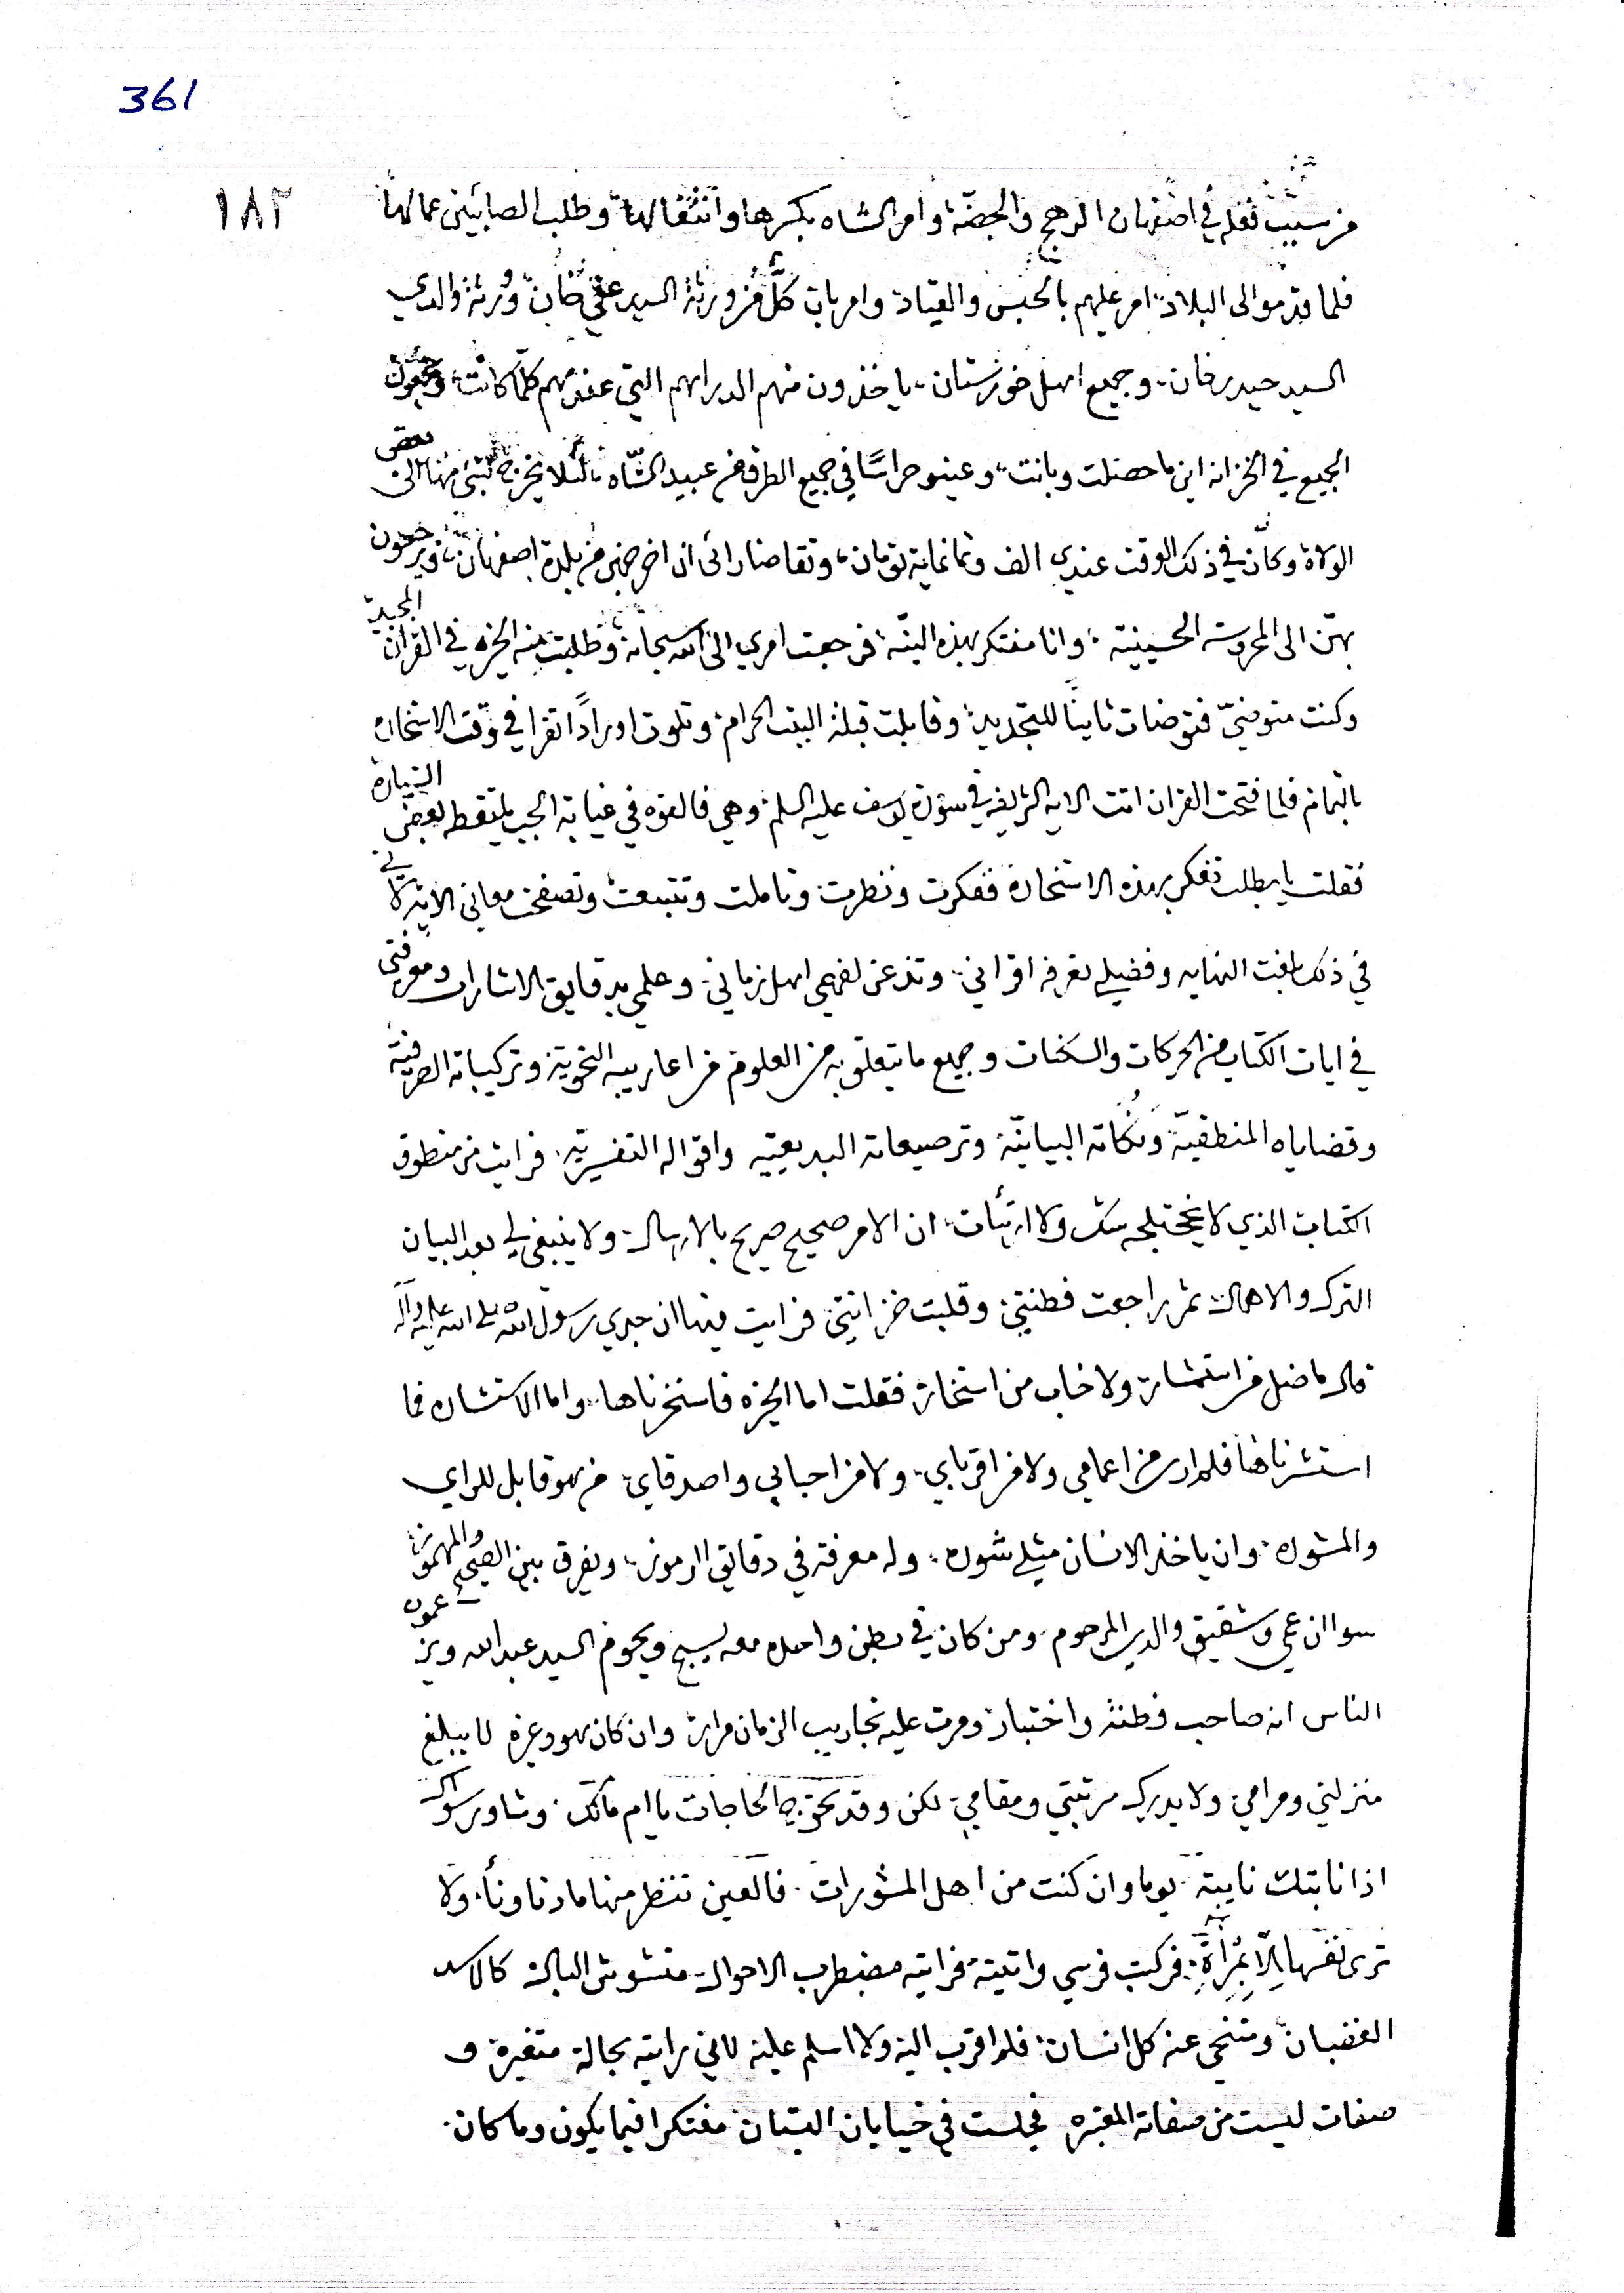 361
١٨٢
من سبب نقله في اصفهان الرهج والجصّة وامر الشاه بكسرها وانتقالها وطلب الصابئين عمالها
فلما قدموا الى البلاد امر عليهم بالحبس والقياد وامر بان كلّ من ورثة السيد علي خان وورثة والدي
السيد حيدر خان وجميع اهل خوزستان ياخذون منهم الدراهم التي عندهم كلّما كانت ويجعلون
الجميع في الخزانه اين ما حصلت وبانت وعينو حراسًا في جميع الطرق من عبيد الشاه لئلا يخرج شئ منها الى بعض
الولاة وكان في ذلك الوقت عندي الف وثمانماية تومان وتقاضا رائى ان اخرجهن من بلدة اصفهان ويرجعون
بهن الى المحروسه الحسينية وانا مفتكر بهذه النيّة فرجعت امري الى الله سبحانه وطلبت منه الخيره في القران المجيد
وكنت متوضيّ فتوضات ثانيًا للتجديد وقابلت قبلة البيت الحرام وتلوت اورادًا تقرا في وقت الاستخاره
بالتمام فلما فتحت القران اتت الايه الشريفه في سورة يوسف عليه السلم وهي فالقوه في غيابة الجب يلتقطه بعض السيارة
فقلت يا بطلت تفكر بهذه الاستخارة ففكرت ونظرت وتاملت وتتبعت وتصفحت معاني الاية لاني
في ذلك بلغت النهايه وفضيلي تعرفه اقراني وتذعن لفهمي اهل زماني وعلمي بدقايق الاشارات ومعرفتي
في ايات الكتاب من الحركات والسكنات وجميع ما يتعلق به من العلوم من اعاريبه النحوية وتركيباته الصرفية
وقضاياه المنطقيّة ونكاته البيانيّة وترصيعاته البديعيّيه واقواله التفسيريّه فرايت من منطوق
الكتاب الذي لا يختلجه شك ولا ارتيات ان الامر صحيح صريح بالارسال ولا ينبغي لي بعد البيان
الترك والاهمال ثم راجعت فطنتي وقلبت خزانتي فرايت فيها ان جدي رسول الله صلى الله عليه واله
قال ما ضل من استشار ولا خاب من استخار فقلت اما الخيره فاستخرناها واما الاستشاره فما
استشرناها فلم ار من اعمامي ولا من اقرباي ولا من احبابي واصدقاي من هو قابل للراي
والمشوره وان ياخذ الانسان مثلي شوره وله معرفة في دقايق الرموز ويفرق بين الصحيح والمهموز
سوا ان عمي وشقيق والدي المرحوم ومن كان في بطن واحده معه يسبح ويحوم السيد عبد الله ويزعمون
الناس انه صاحب فطنة واختبار ومرت عليه تجاريب الزمان مرار وان كان هو وغيره لا يبلغ
منزلتي ومرامي ولا يدرك مرتبتي ومقامي لكن وقد تحوج الحاجات يا ام مالك وشاور سواك
اذا نابتك نايبة يوما وان كنت من اهل المشورات فالعين تنظر منها ما دنا ونأ ولا
ترى نفسها الّا بمرآةٍ فركبت فرسي واتيته فرايته مضطرب الاحوال متشوش البال كالاسد
الغضبان ومتنحي عنه كل انسان فلم اقرب اليه ولا اسلم عليه لاني رايته بحالة متغيرة و
صفات ليست من صفاته المعتبره فجلست في خيابان البستان مفتكرا فيما يكون وما كان